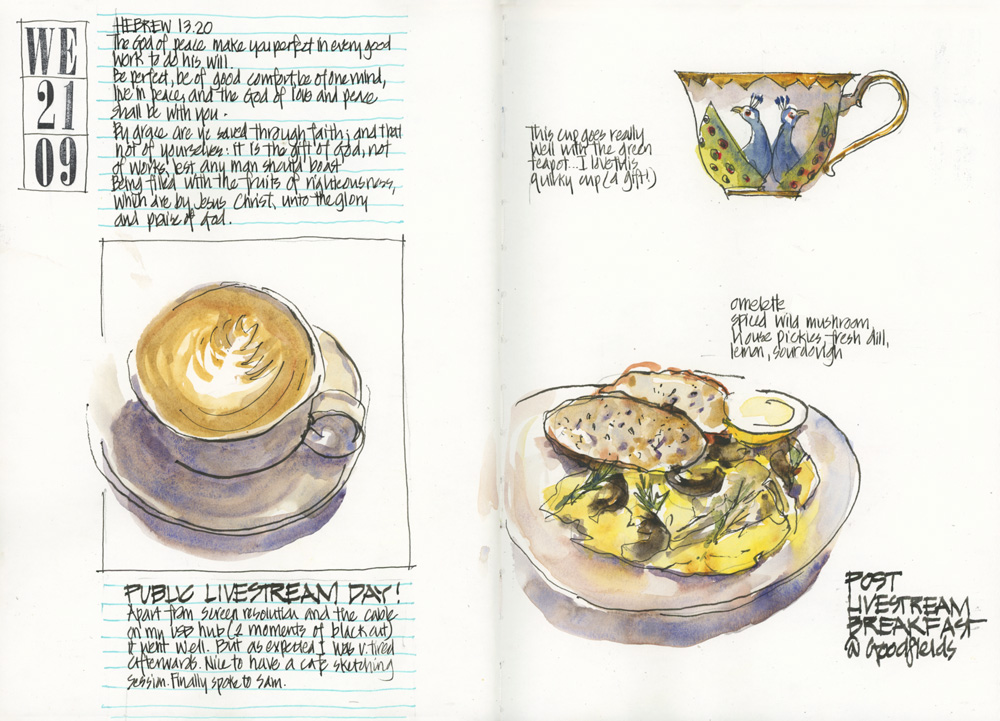 WE
21
09
HEBREW 13.20
The God of peace make you perfect in every good
work to do his will.
Be perfect, be of good comfort, be of one mind,
live in peace, and the God of love and peace
shall be with you.
By grace are ye saved through faith; and that
not of yourselves: it is the gift of God, not
of works, lest any man should boast
Being filled with the fruits of righteousness,
which are by Jesus Christ, unto the glory
and praise of God.
PUBLIC LIVESTREAM DAY!
Apart from screen resolution and the cable
on my USB hub (2 moments of black out)
it went well. But as expected I was v. tired
afterwards. Nice to have a cafe sketching
session. Finally spoke to Sam.
This cup goes really
well with the green
teapot... I love this
quirky cup (a gift!)
omelette
spiced wild mushroom,
house pickles, fresh dill,
lemon, sourdough
POST
LIVESTREAM
BREAKFAST
@ Goodfields